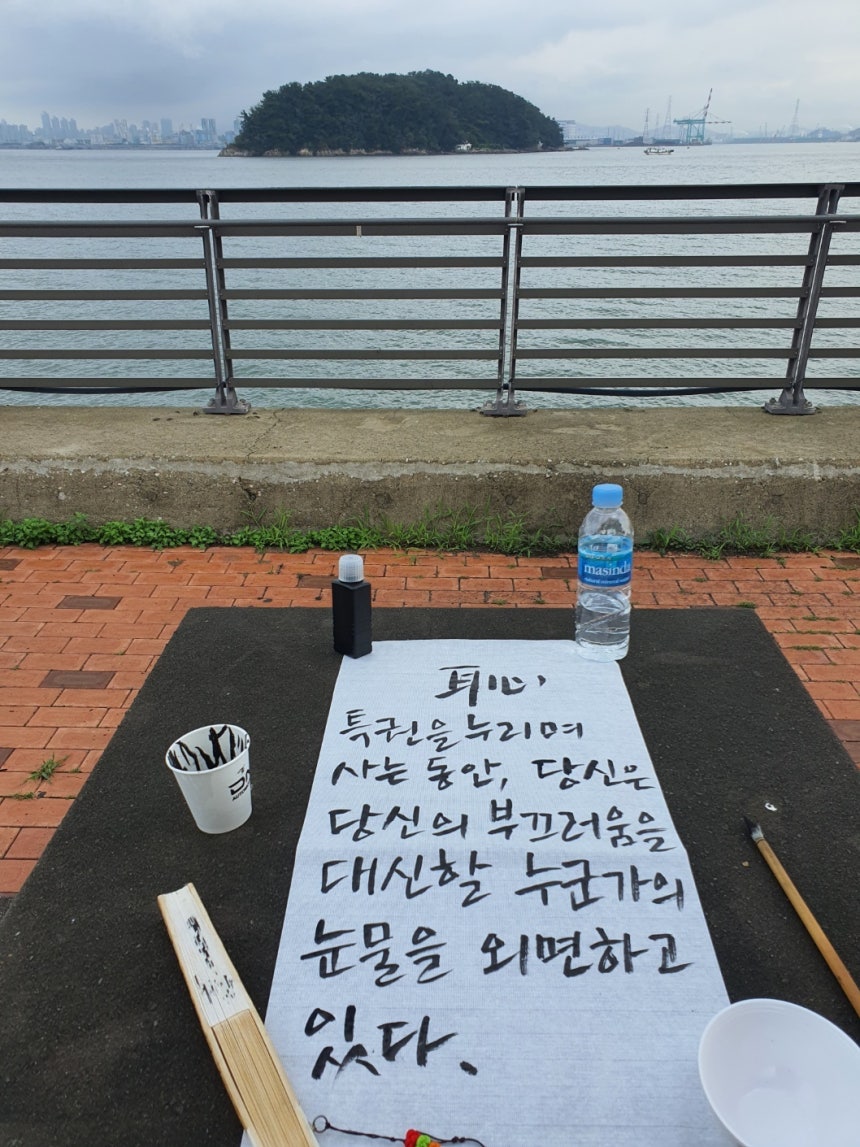 恥
특권을 누리며
사는 동안, 당신은
당신의 부끄러움을
대신할 누군가의
눈물을 외면하고
있다.
masinda
natural mineral water